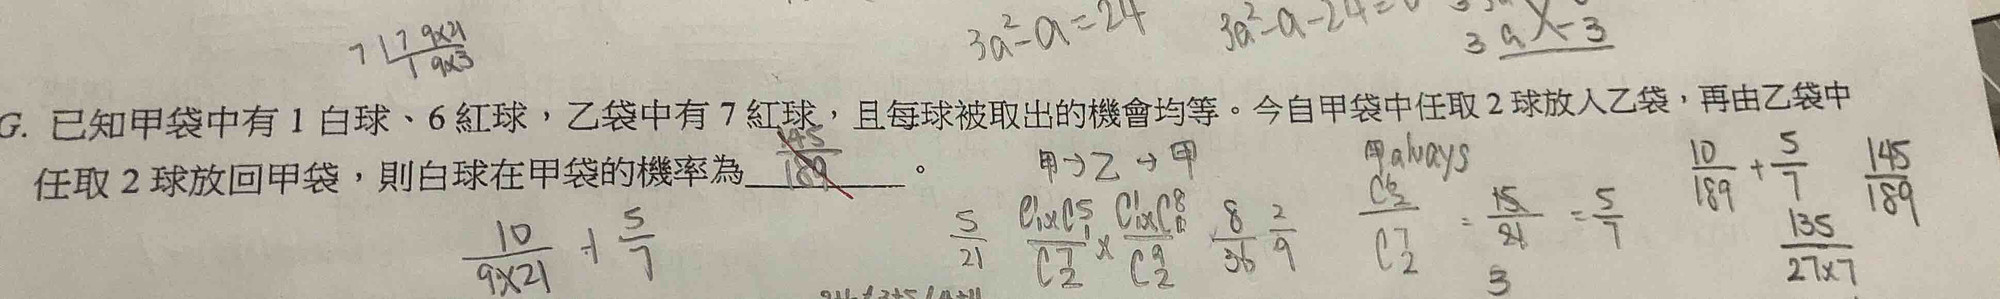 7 9×21
1 9×3
3a²-a=24 3a²-a-24=0
3 a -3
G. 已知甲袋中有 1 白球、6 紅球，乙袋中有 7 紅球，且每球被取出的機會均等。今自甲袋中任取 2 球放入乙袋，再由乙袋中
任取 2 球放回甲袋，則白球在甲袋的機率為 145/189 。
甲→乙→甲 甲always 10/189 + 5/7 145/189
10/(9×21) + 5/7 5/21 (C¹₁×C⁵₁)/C⁷₂ × (C¹₁×C⁸₁)/C⁹₂ 8/36 2/9 C⁶₂/C⁷₂ = 15/21 = 5/7 135/(27×7)
3